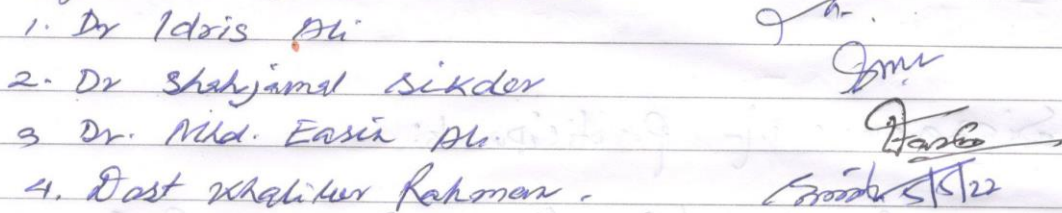 1. Dr Idris Ali
2. Dr Shahjamal Sikder
3 Dr. Md. Easin Ali
4. Dost Khalilur Rahman. 5/5/22